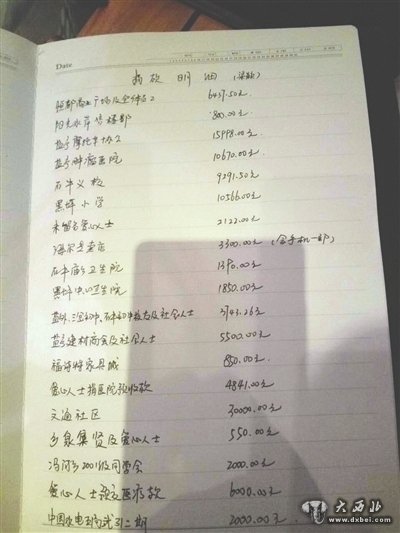 Date
捐款明细
6457.50元
阳光水岸售楼部 800.00元
盐亭摩托车协会 15998.00元
盐亭肿瘤医院 10670.00元
石牛义校 9291.50元
黑坪小学 10566.00元
未留名爱心人士 2122.00元
海尔专卖店 3300.00元(含手机一部)
石牛庙乡卫生院 1390.00元
黑坪中心卫生院 1850.00元
及社会人士 3743.26元
盐亭建材商会及社会人士 5500.00元
福诗特家具城 850.00元
爱心人士捐医院预收款 4841.00元
文通社区 30000.00元
乡泉集贤及爱心人士 550.00元
冯河乡2001级同学会 2000.00元
爱心人士 医疗款 6000.00元
中国水电 二期 2000.00元
大西北
www.dxbei.com